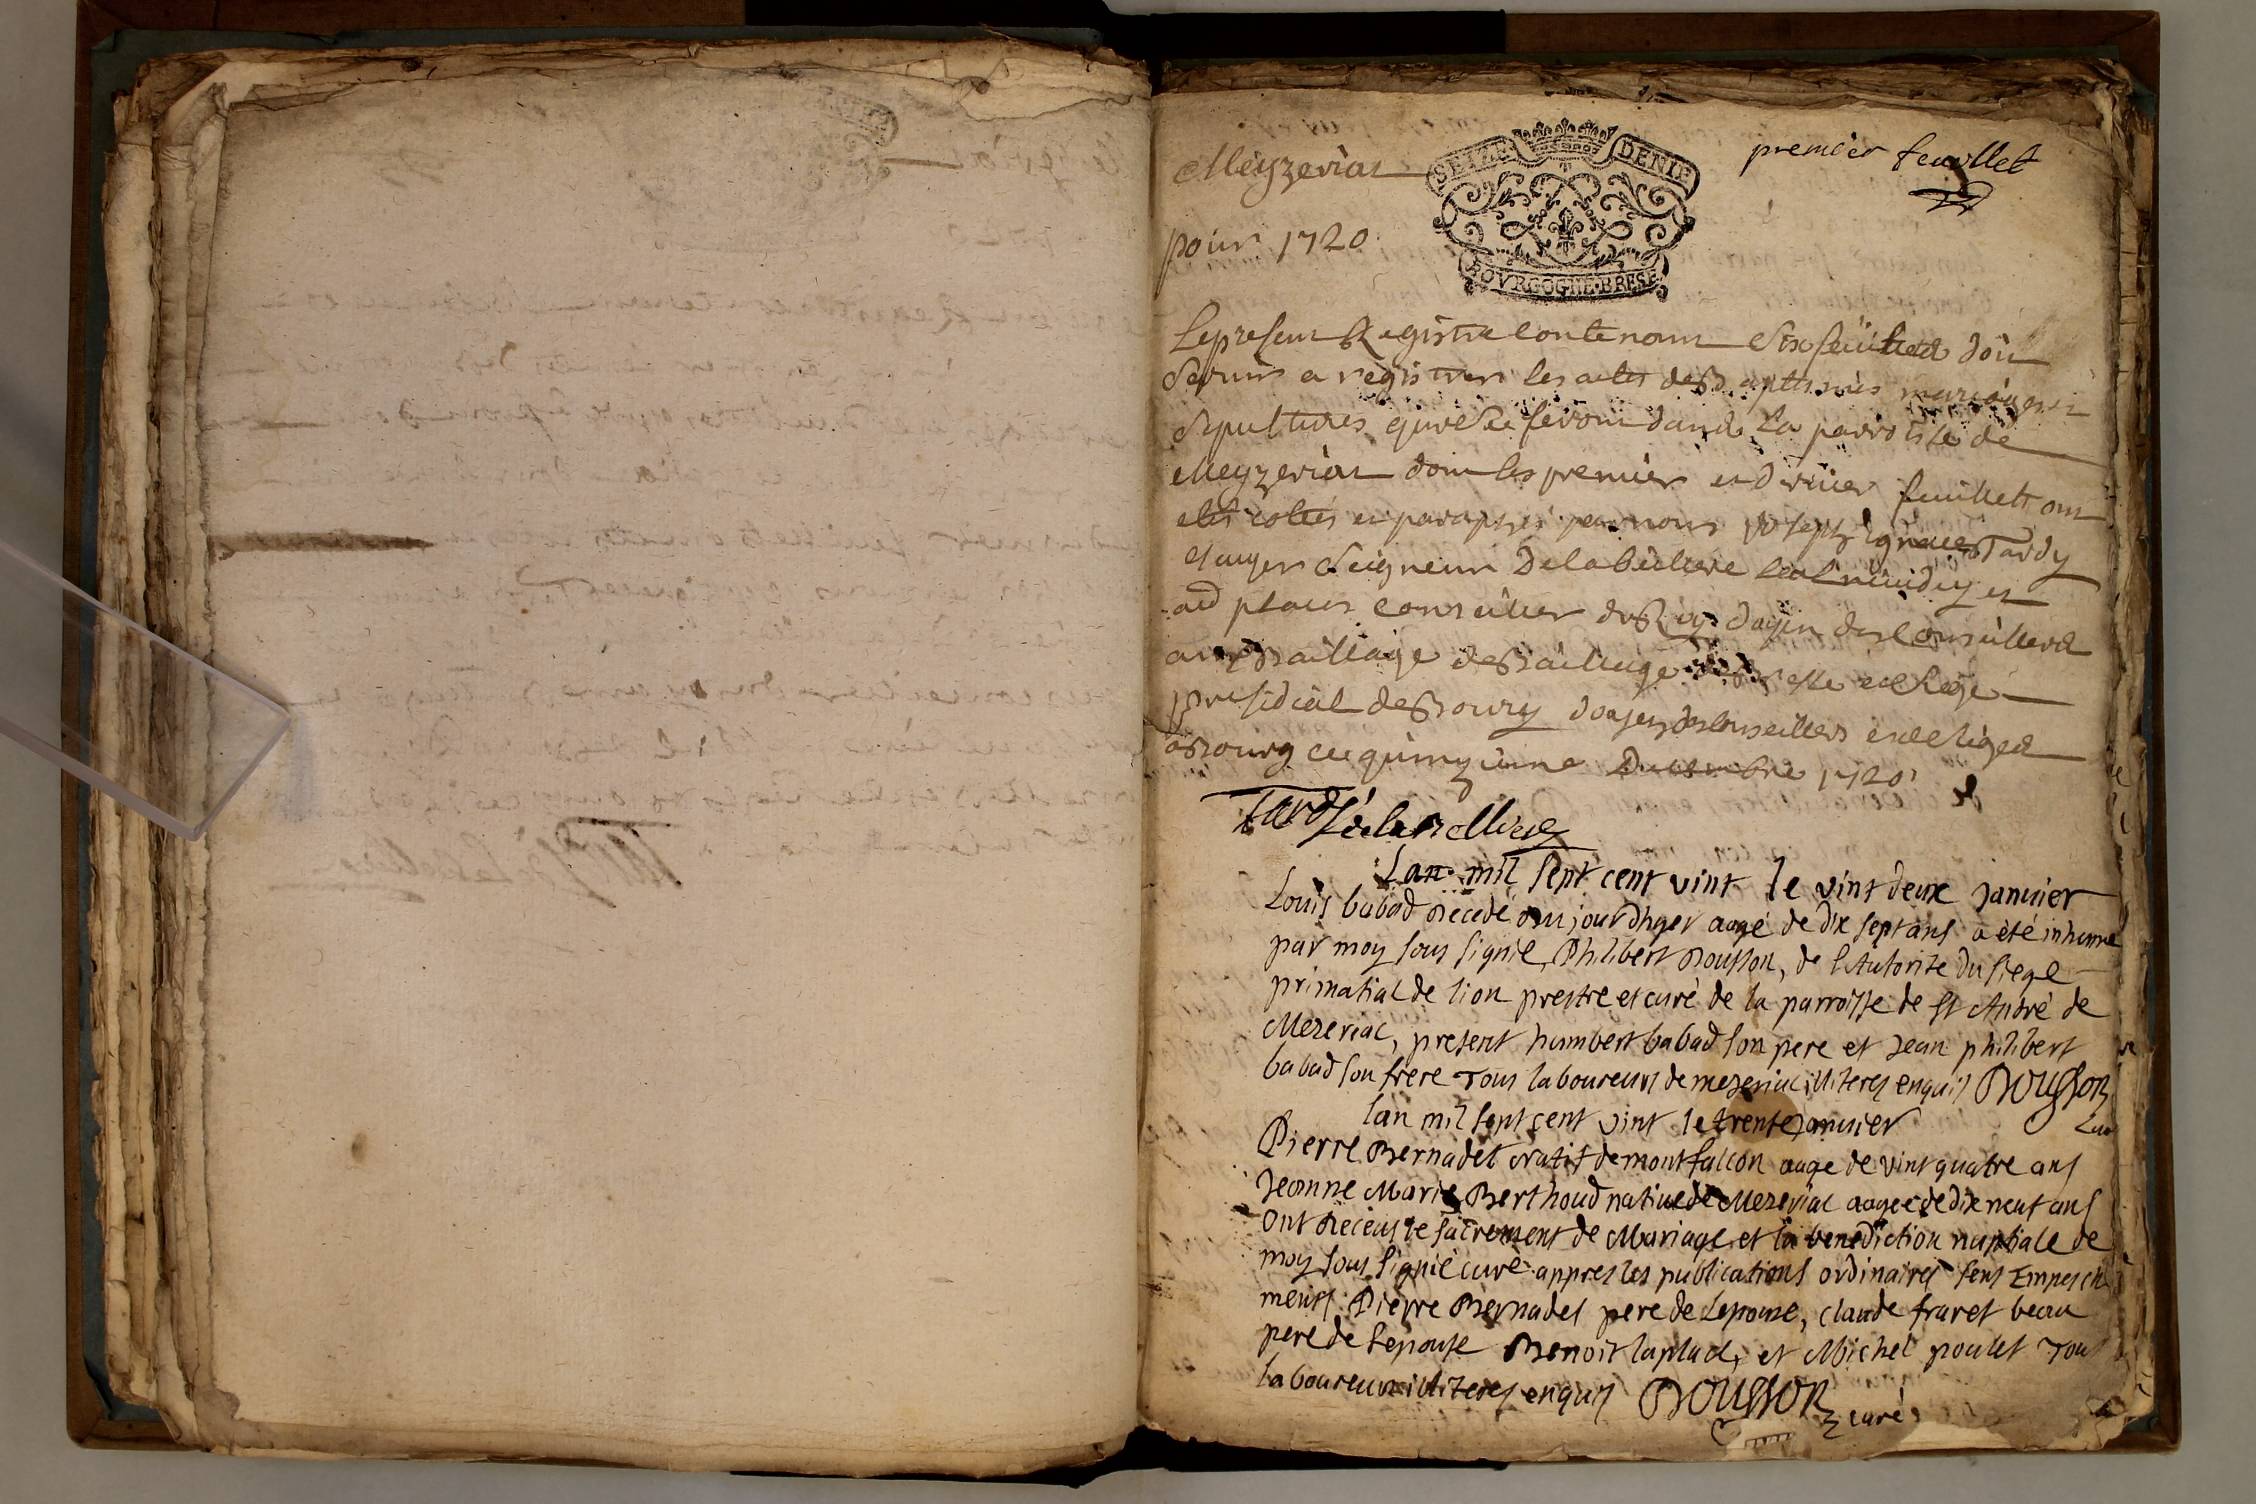 Meyzeriat
SEIZE DENIE
premier feuillet
pour 1720
BOVRGOGNE·BRESE
Le present Registre contenant six feuillets doit
servir a registrer les actes des baptesmes mariages et
sepultures qui se feront dans la parroisse de
Meyzeriat dont les premier et dernier feuillets ont
etés cottés et paraphés par nous Joseph Ignace Tardy
escuyer seigneur De la belliere et
conseiller du Roy doyen des conseillers
au Bailliage
presidial de Bourg doyen des conseillers
a Bourg ce quinzieme 1720
Tardy de la Belliere
Lan mil sept cent vint le vint deux janvier
Louis babad decedé aujourdhyer aagé de dix sept ans a été inhumé
par moy sous signié, Philibert Bousson, de l'Autorite du siege
primatial de lion prestre et curé de la parroisse de st André de
Mezeriac, present humbert babad son pere et Jean philibert
babad son frere Tous laboureurs de mezeriac illiteres enquis Bousson
Cur
lan mil sept cent vint le trente janvier
Pierre Bernadet natif de montfalcon aage de vint quatre ans
Jeanne Marie Berthoud native de Mezeriac aagee de dix neuf ans
Ont Receus le sacrement de Mariage et la benediction nuptiale de
moy sous signié curé appres les publications ordinaires sens Empesch
mens Pierre Bernadet pere de Lepoux, claude fravet beau
pere de Lepouse Benoit laplace, et Michel poulet Tous
laboureurs illiteres enquis Bousson
curé